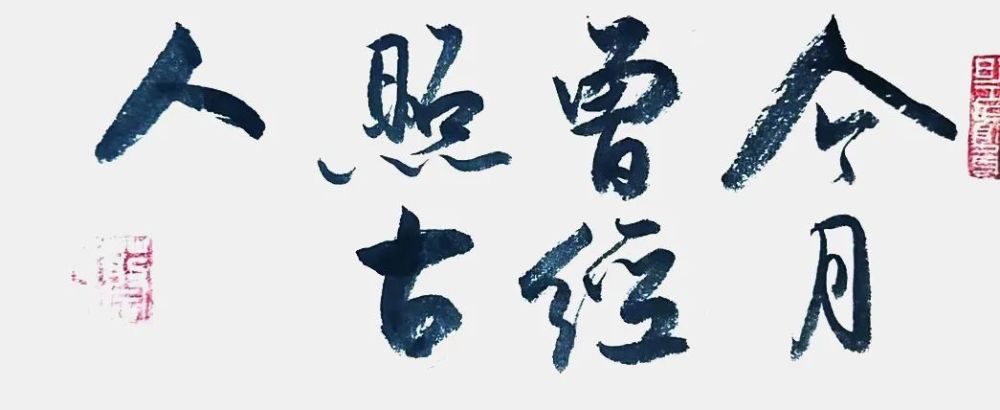 今月
曾經
照古
人